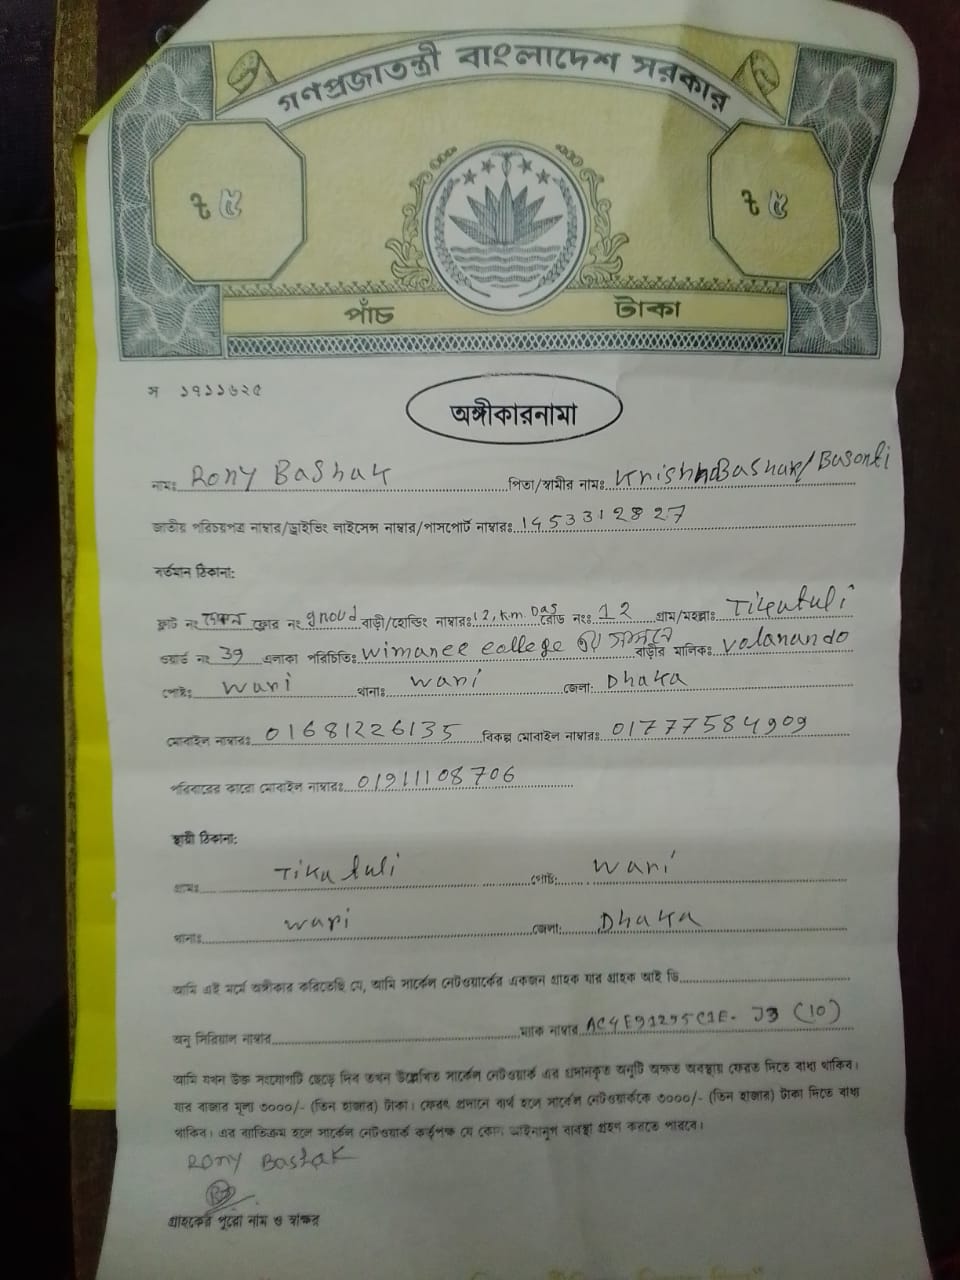 গণপ্রজাতন্ত্রী বাংলাদেশ সরকার
৳ ৫ ৳ ৫
পাঁচ টাকা
স ১৭১১৬২৫
অঙ্গীকারনামা
নামঃ Rony Bashak পিতা/স্বামীর নামঃ Krishna Bashak/Basonti
জাতীয় পরিচয়পত্র নাম্বার/ড্রাইভিং লাইসেন্স নাম্বার/পাসপোর্ট নাম্বারঃ 1453312827
বর্তমান ঠিকানা:
ফ্লাট নং ফ্লোর নং groud বাড়ী/হোল্ডিং নাম্বারঃ 12, K.m. Das রোড নংঃ 12 গ্রাম/মহল্লাঃ Tikatuli
ওয়ার্ড নং 39 এলাকা পরিচিতিঃ Wimanee college এর সামনে বাড়ীর মালিকঃ Volanando
পোষ্টঃ Wari থানাঃ Wari জেলা: Dhaka
মোবাইল নাম্বারঃ 01681226135 বিকল্প মোবাইল নাম্বারঃ 01777584909
পরিবারের কারো মোবাইল নাম্বারঃ 01911108706
স্থায়ী ঠিকানা:
গ্রামঃ Tikatuli পোষ্ট: Wari
থানাঃ Wari জেলা: Dhaka
আমি এই মর্মে অঙ্গীকার করিতেছি যে, আমি সার্কেল নেটওয়ার্কের একজন গ্রাহক যার গ্রাহক আই ডি
অনু সিরিয়াল নাম্বার ম্যাক নাম্বার AC4E91295C1E- J3 (10)
আমি যখন উক্ত সংযোগটি ছেড়ে দিব তখন উল্লেখিত সার্কেল নেটওয়ার্ক এর প্রদানকৃত অনুটি অক্ষত অবস্থায় ফেরত দিতে বাধ্য থাকিব।
যার বাজার মূল্য ৩০০০/- (তিন হাজার) টাকা। ফেরৎ প্রদানে ব্যর্থ হলে সার্কেল নেটওয়ার্ককে ৩০০০/- (তিন হাজার) টাকা দিতে বাধ্য
থাকিব। এর ব্যতিক্রম হলে সার্কেল নেটওয়ার্ক কর্তৃপক্ষ যে কোন আইনানুগ ব্যবস্থা গ্রহণ করতে পারবে।
Rony Bashak
গ্রাহকের পুরো নাম ও স্বাক্ষর